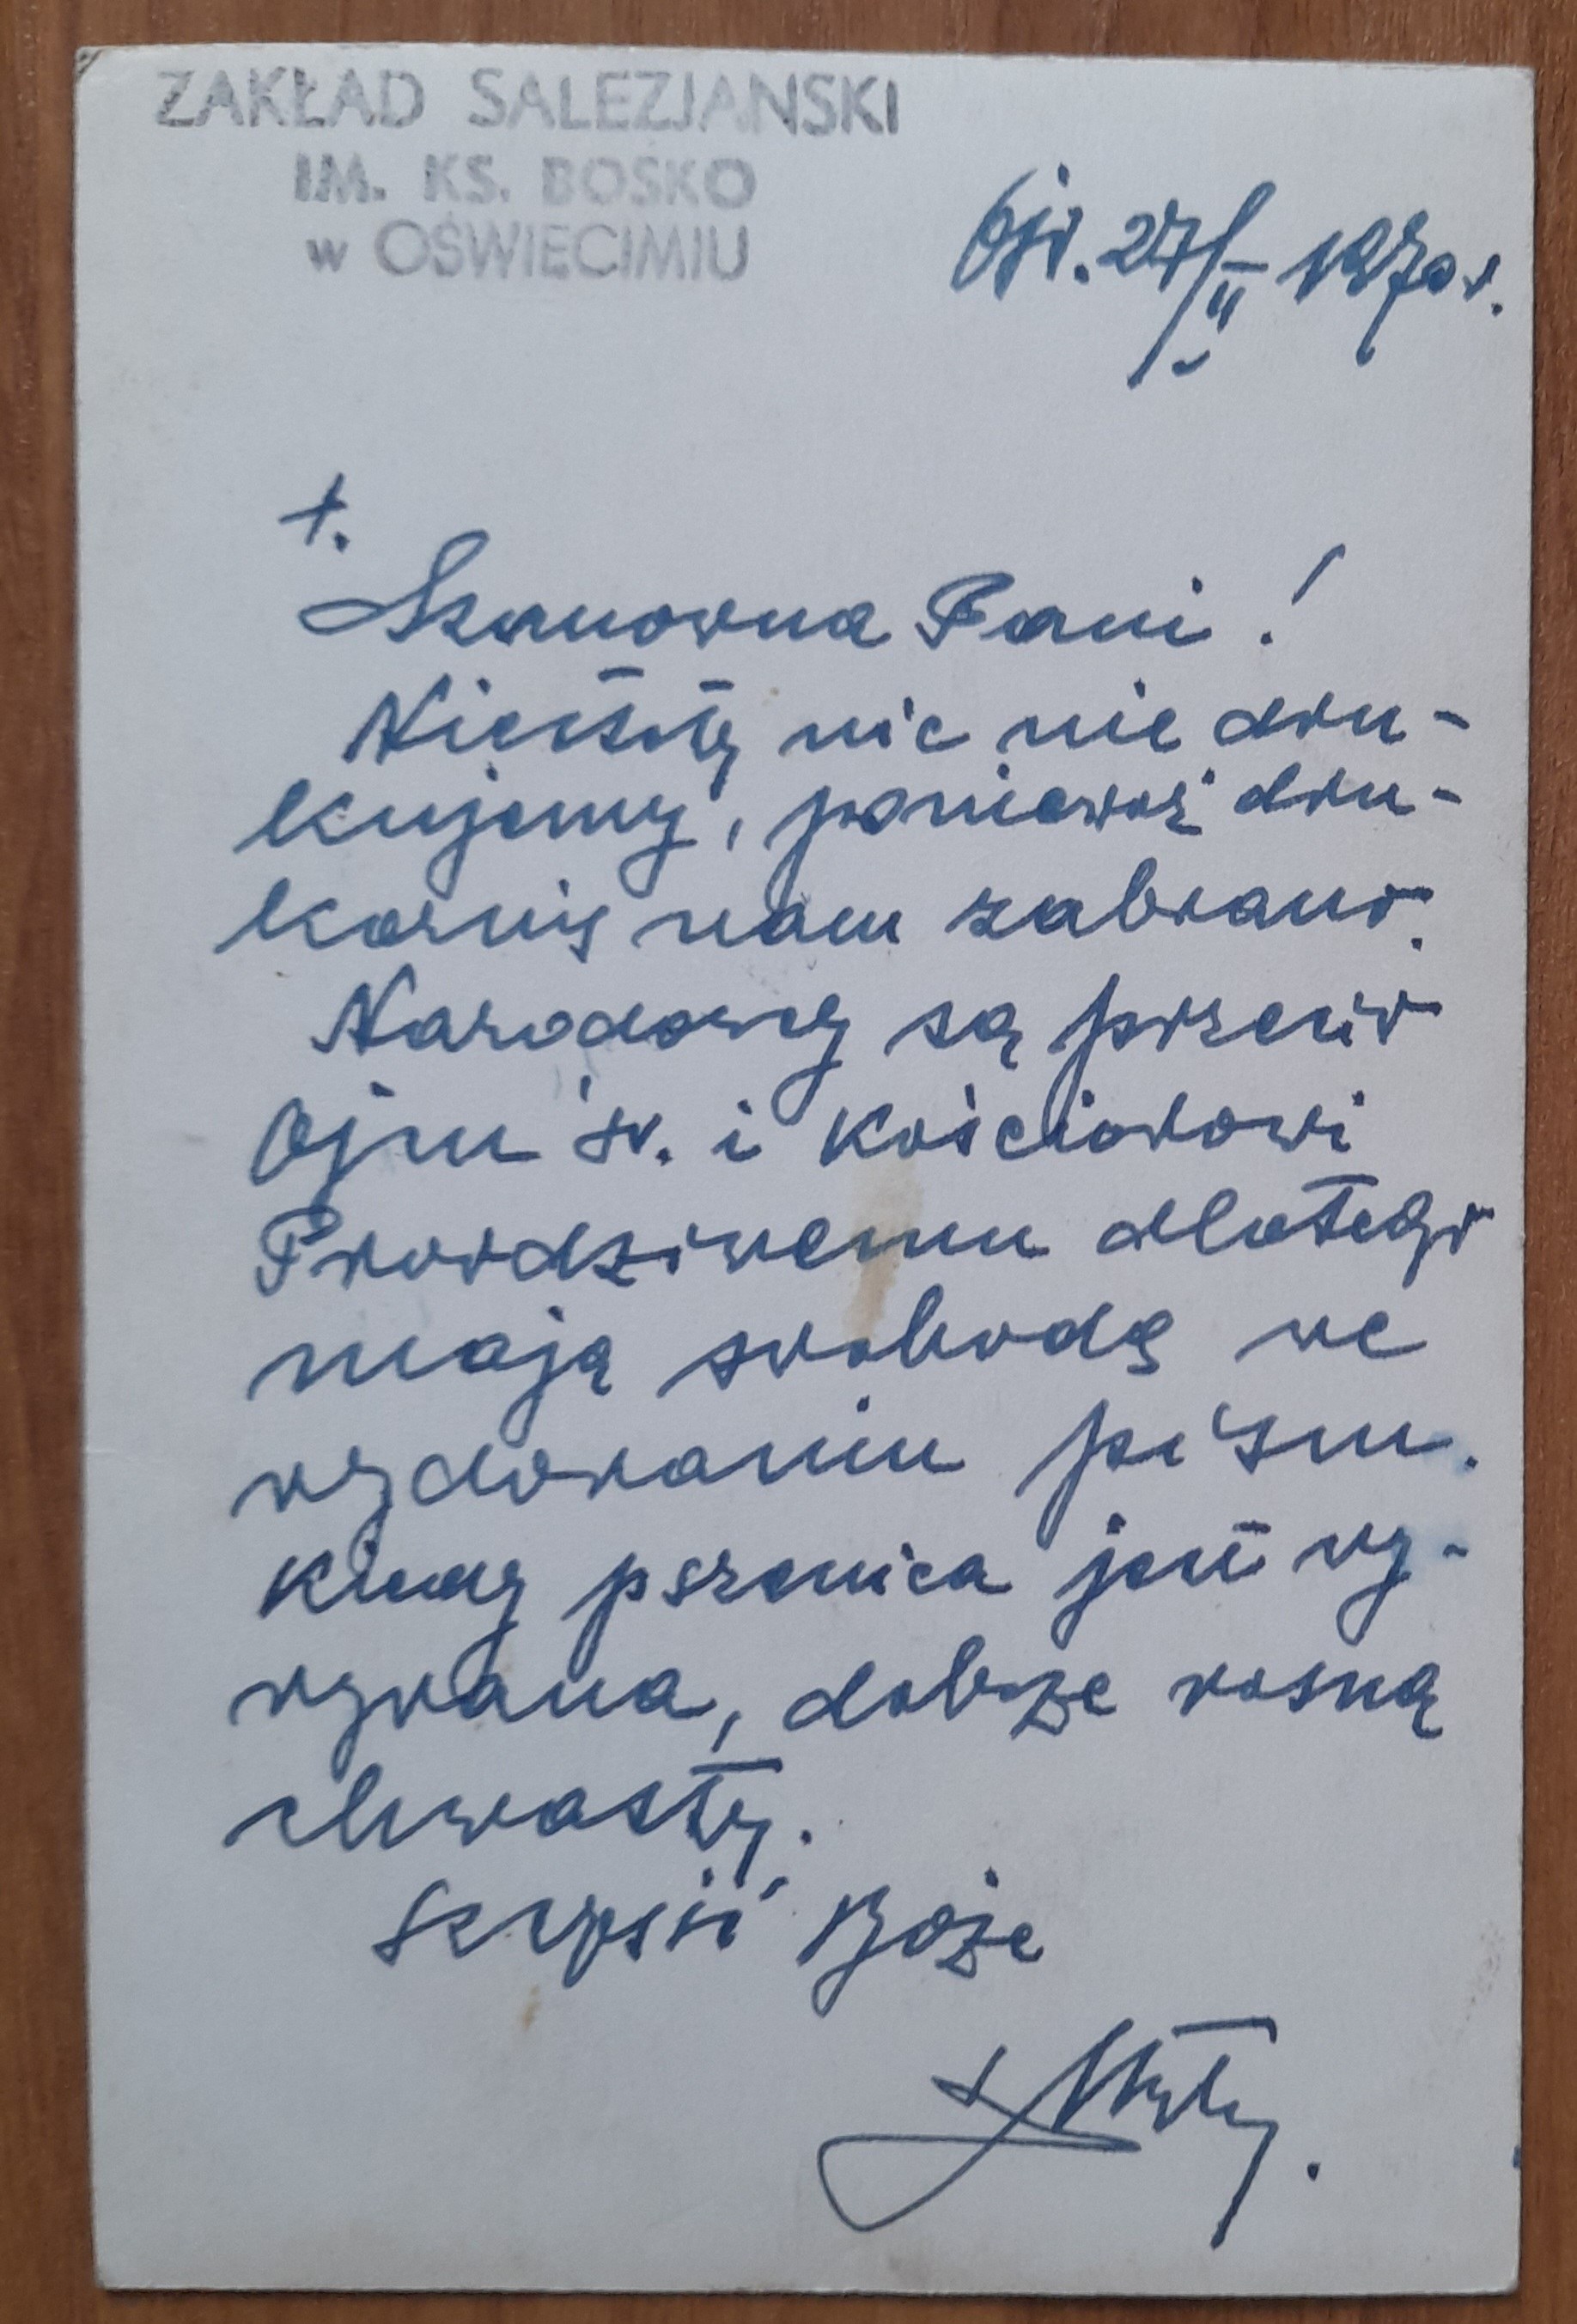 ZAKŁAD SALEZJANSKI
IM. KS. BOSKO
w OŚWIĘCIMIU
Ośw. 27/II 1970 r.
+.
Szanowna Pani!
Niestety nic nie dru-
kujemy, ponieważ dru-
karnię nam zabrano.
Narodowcy są przeciw
Ojcu św. i Kościołowi
Prawdziwemu dlatego
mają swobodę we
wydawaniu pism.
Kiedy pszenica jest wy-
rywana, dobrze rosną
chwasty.
Szczęść Boże